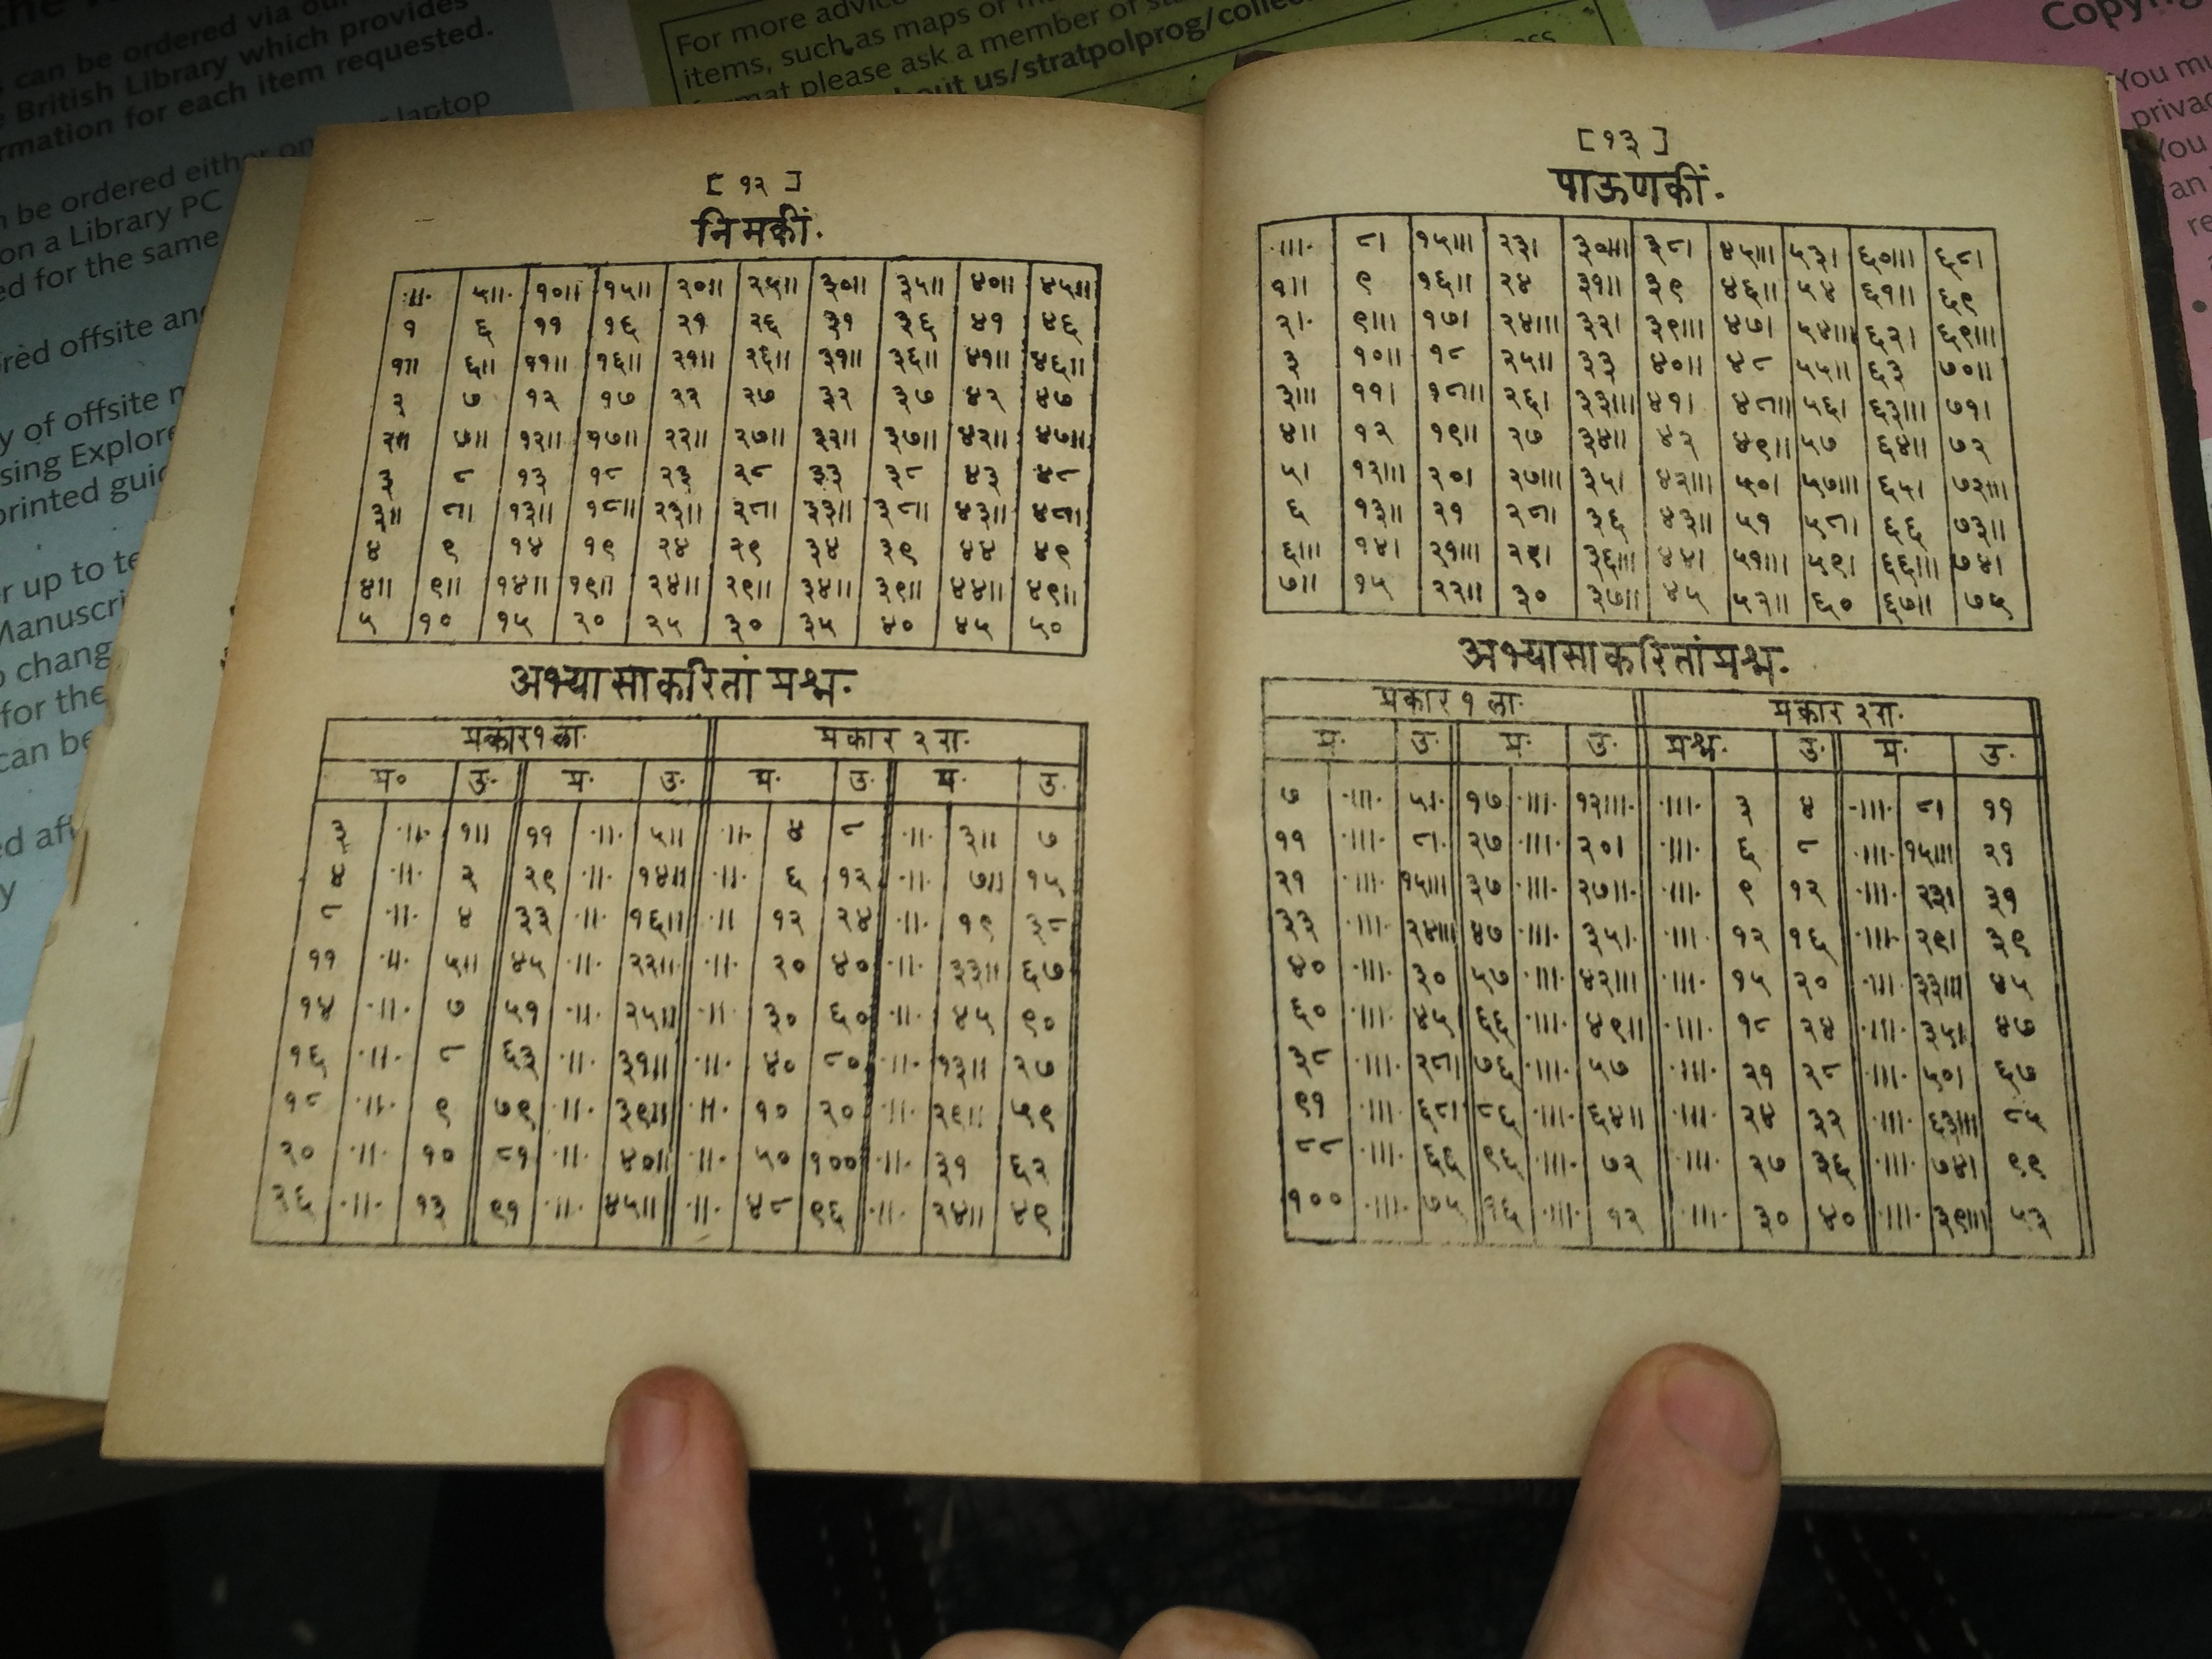 can be ordered via
British Library which provides
for each item requested.
For more advice
items, such as maps or
format please ask a member of
about us/stratpolprog/collec
[ १२ ]
निमकीं.
·॥· ५॥· १०॥ १५॥ २०॥ २५॥ ३०॥ ३५॥ ४०॥ ४५॥
१ ६ ११ १६ २१ २६ ३१ ३६ ४१ ४६
१॥ ६॥ ११॥ १६॥ २१॥ २६॥ ३१॥ ३६॥ ४१॥ ४६॥
२ ७ १२ १७ २२ २७ ३२ ३७ ४२ ४७
२॥ ७॥ १२॥ १७॥ २२॥ २७॥ ३२॥ ३७॥ ४२॥ ४७॥
३ ८ १३ १८ २३ २८ ३३ ३८ ४३ ४८
३॥ ८॥ १३॥ १८॥ २३॥ २८॥ ३३॥ ३८॥ ४३॥ ४८॥
४ ९ १४ १९ २४ २९ ३४ ३९ ४४ ४९
४॥ ९॥ १४॥ १९॥ २४॥ २९॥ ३४॥ ३९॥ ४४॥ ४९॥
५ १० १५ २० २५ ३० ३५ ४० ४५ ५०
अभ्यासाकरितां प्रश्न.
प्रकार १ ला. प्रकार २ रा.
प्र० उ. प्र. उ. प्र. उ. प्र. उ.
३ ·॥· १॥ ११ ·॥· ५॥ ·॥· ४ ८ ·॥· ३॥ ७
४ ·॥· २ २९ ·॥· १४॥ ·॥· ६ १२ ·॥· ७॥ १५
८ ·॥· ४ ३३ ·॥· १६॥ ·॥ १२ २४ ·॥· १९ ३८
११ ·॥· ५॥ ४५ ·॥· २२॥ ·॥· २० ४० ·॥· ३३॥ ६७
१४ ·॥· ७ ५१ ·॥· २५॥ ·॥· ३० ६० ·॥· ४५ ९०
१६ ·॥· ८ ६३ ·॥· ३१॥ ·॥· ४० ८० ·॥· १३॥ २७
१८ ·॥· ९ ७९ ·॥· ३९॥ ·॥· १० २० ·॥· २९॥ ५९
२० ·॥· १० ८१ ·॥· ४०॥ ·॥· ५० १०० ·॥· ३१ ६२
३६ ·॥· १३ ९१ ·॥· ४५॥ ·॥· ४८ ९६ ·॥· २४॥ ४९
[ १३ ]
पाऊणकीं.
·॥।· ८। १५॥। २३। ३०॥। ३८। ४५॥। ५३। ६०॥। ६८।
१॥ ९ १६॥ २४ ३१॥ ३९ ४६॥ ५४ ६१॥ ६९
२।· ९॥। १७। २४॥। ३२। ३९॥। ४७। ५४॥। ६२। ६९॥।
३ १०॥ १८ २५॥ ३३ ४०॥ ४८ ५५॥ ६३ ७०॥
३॥। ११। १८॥। २६। ३३॥। ४१। ४८॥। ५६। ६३॥। ७१।
४॥ १२ १९॥ २७ ३४॥ ४२ ४९॥ ५७ ६४॥ ७२
५। १२॥। २०। २७॥। ३५। ४२॥। ५०। ५७॥। ६५। ७२॥।
६ १३॥ २१ २८॥ ३६ ४३॥ ५१ ५८॥ ६६ ७३॥
६॥। १४। २१॥। २९। ३६॥। ४४। ५१॥। ५९। ६६॥। ७४।
७॥ १५ २२॥ ३० ३७॥ ४५ ५२॥ ६० ६७॥ ७५
अभ्यासाकरितां प्रश्न.
प्रकार १ ला. प्रकार २ रा.
प्र. उ. प्र. उ. प्रश्न. उ. प्र. उ.
७ ·॥।· ५।· १७ ·॥।· १२॥।· ·॥।· ३ ४ ·॥।· ८। ११
११ ·॥।· ८। २७ ·॥।· २०। ·॥।· ६ ८ ·॥।· १५॥। २१
२१ ·॥।· १५॥। ३७ ·॥।· २७॥· ·॥।· ९ १२ ·॥।· २३। ३१
३३ ·॥।· २४॥। ४७ ·॥।· ३५।· ·॥। १२ १६ ·॥।· २९। ३९
४० ·॥।· ३० ५७ ·॥।· ४२॥। ·॥।· १५ २० ·॥। ३३॥। ४५
६० ·॥।· ४५ ६६ ·॥।· ४९॥ ·॥।· १८ २४ ·॥।· ३५। ४७
३८ ·॥।· २८॥ ७६ ·॥।· ५७ ·॥।· २१ २८ ·॥।· ५०। ६७
९१ ·॥।· ६८। ८६ ·॥।· ६४॥ ·॥।· २४ ३२ ·॥।· ६३॥। ८५
८८ ·॥।· ६६ ९६ ·॥।· ७२ ·॥।· २७ ३६ ·॥।· ७४। ९९
१०० ·॥।· ७५ १६ ·॥।· १२ ·॥।· ३० ४० ·॥।· ३९॥। ५३